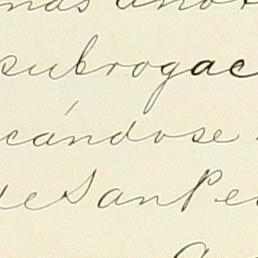 mas anot
subrogac
cándose
de San Pe